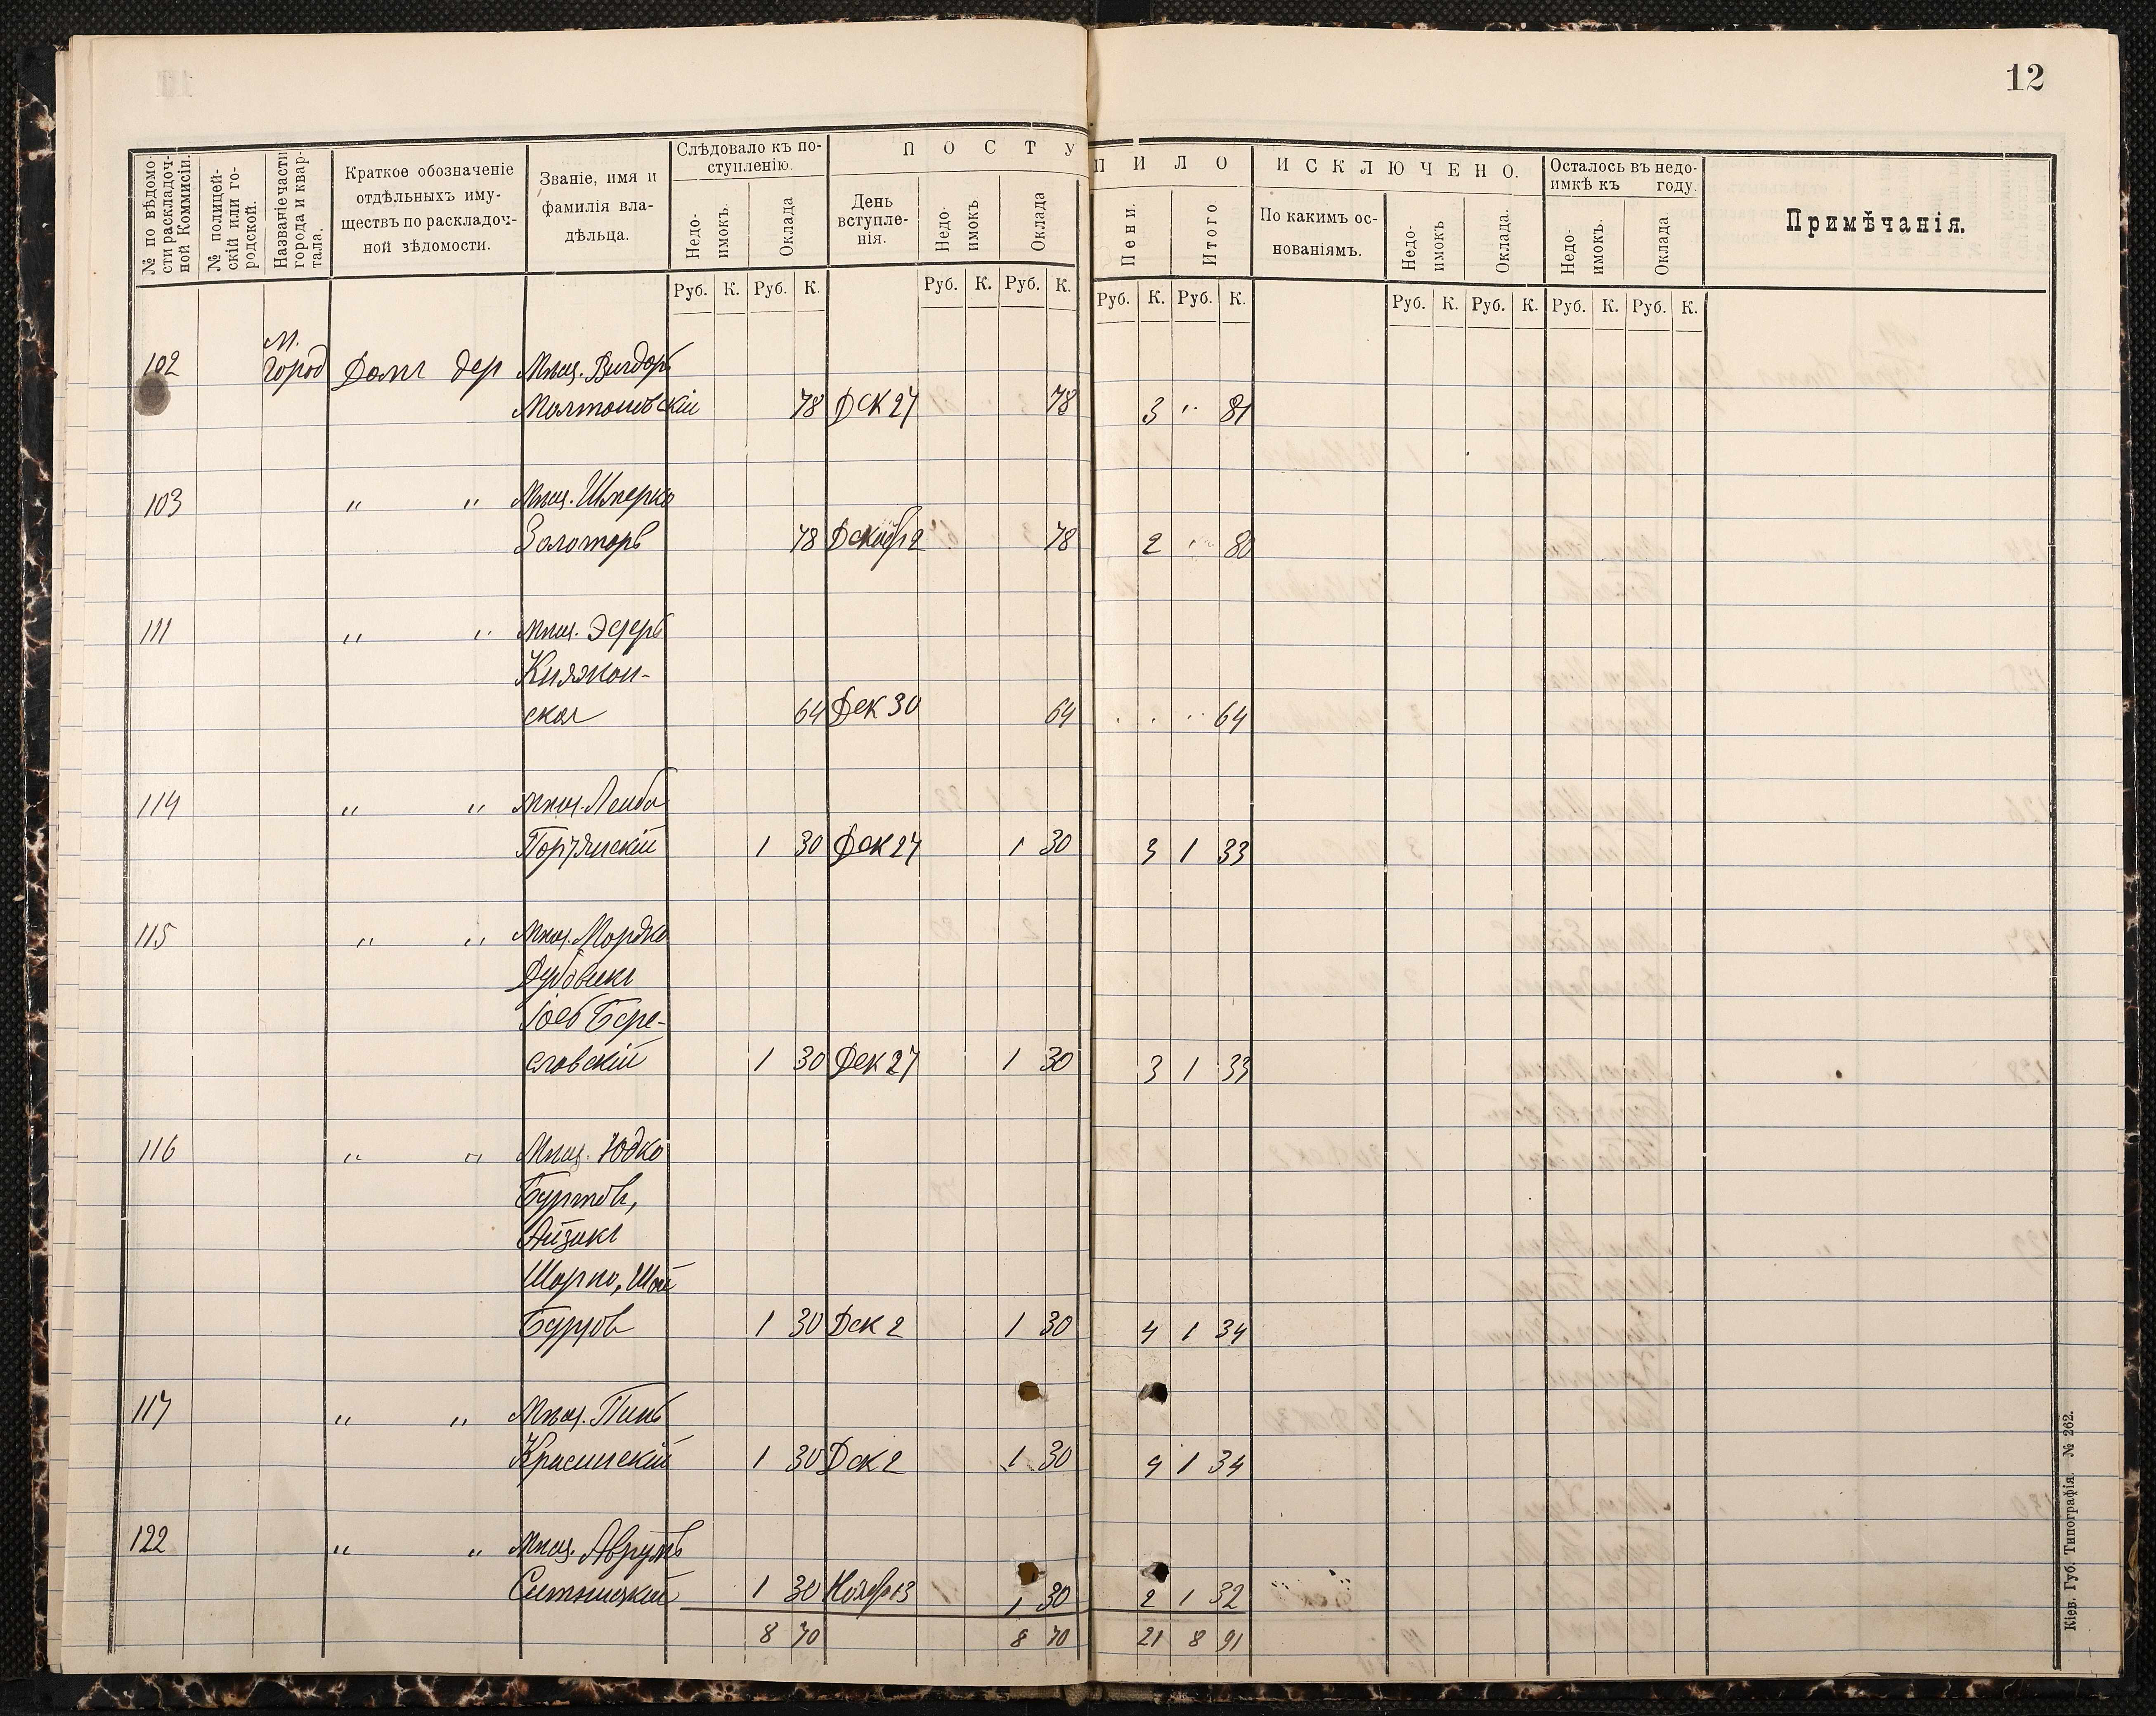 12
№ по вѣдомости раскладочной Коммисіи.
№ полицейскій или городской.
Названіе части города и квартала.
Краткое обозначеніе
отдѣльныхъ иму-
ществъ по раскладоч-
ной вѣдомости.
Званіе, имя и
фамилія вла-
дѣльца.
Слѣдовало къ по-
ступленію.
Недо-
имокъ.
Оклада
ПОСТУПИЛО
День
вступле-
нія.
Недо-
имокъ
Оклада
Пени.
Итого
ИСКЛЮЧЕНО.
По какимъ ос-
нованіямъ.
Недо-
имокъ
Оклада.
Осталось въ недо-
имкѣ къ году.
Недо-
имокъ.
Оклада
Примѣчанія.
Руб. К. Руб. К. Руб. К. Руб. К. Руб. К. Руб. К. Руб. К. Руб. К. Руб. К. Руб. К.
М.
102 город Домъ дер Мѣщ. Вигдоръ
78 Дек 27 78 3 " 81
103 " " Мѣщ. Шмерко
Золоторъ 78 Декабр 2 78 2 " 80
111 " " Мѣщ. Эсфрь
Княжон-
ская 64 Дек 30 64 . . " 64
114 " " Мѣщ. Лейба
1 30 Дек 27 1 30 3 1 33
115 " " Мѣщ. Мордко
Дубовикъ
Іосъ Бере-
словскій 1 30 Дек 27 1 30 3 1 33
116 " " Мѣщ. Юдко
Айзикъ
1 30 Дек 2 1 30 4 1 34
117 " " Мѣщ. Пинь
Красинскій 1 30 Дек 2 1 30 4 1 34
122 " " Мѣщ. Аврумъ
Ситницкій 1 30 Ноябр 13 1 30 2 1 32
8 70 8 70 21 8 91
Кіев. Губ. Типографія. № 262.